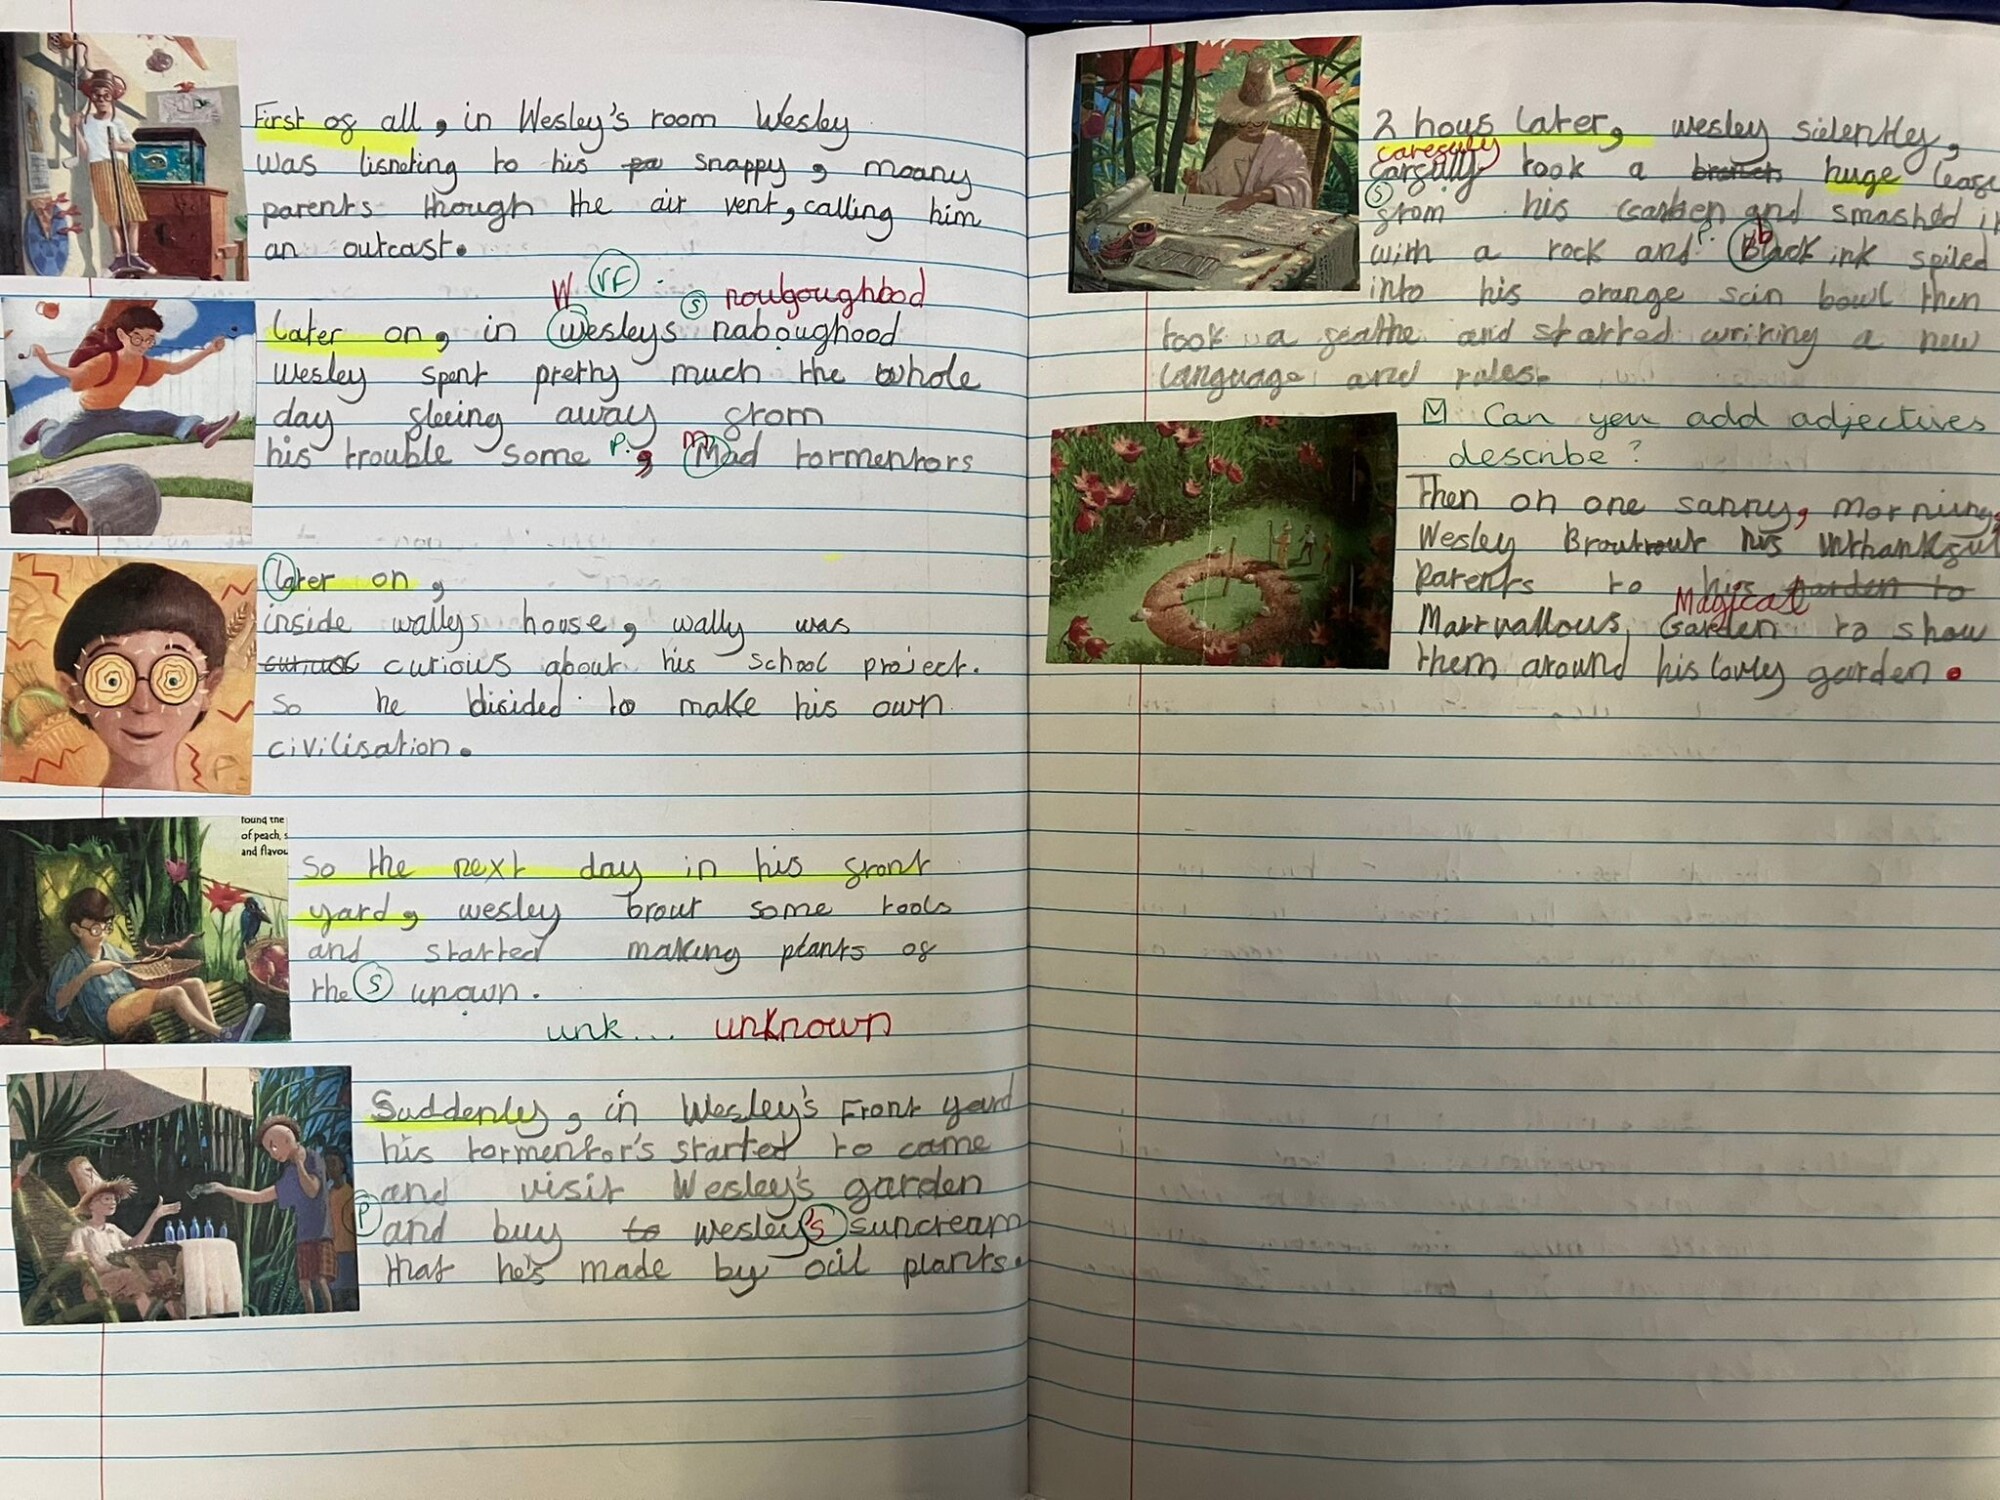 First of all, in Wesley's room Wesley
was lisneting to his pa snappy, moany
parents though the air vent, calling him
an outcast.
W rF
S nouboughood
later on, in wesleys naboughood
Wesley spent pretty much the whole
day fleeing away from
his trouble some P. , m Mad tormentors
later on,
inside wallys house, wally was
curious about his school project.
So he disided to make his own
civilisation.
found the
of peach, s
and flavou
So the next day in his front
yard, wesley brout some tools
and started making plants of
the S unown.
unk... unknown
Suddenly, in Wesley's Front yard
his tormentor's started to come
and visit Wesley's garden
P and buy to wesley's suncream
that he's made by oil plants.
2 hous later, wesley sielently,
carefuly
carfully took a huge leafe
S from his garden and smashdd it
with a rock and P. b Black ink spiled
into his orange scin bowl then
took a feathe and started writing a new
language and rules.
M Can you add adjectives
describe?
Then on one sanny, morning,
Wesley Brout his unthankful
parents to his garden to
Magical
Marrvallous, Garden to show
them around his lovly garden.